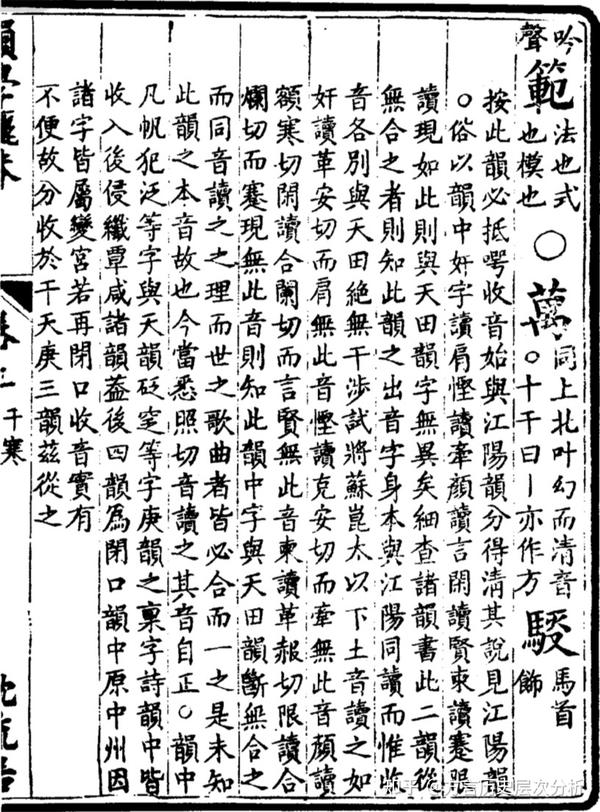 吟 法也式
聲範也模也○萬同上北叶幻而清音
○十千曰丨亦作方駿馬首
飾
按此韻必抵㗁收音始與江陽韻分得清其說見江陽韻
○俗以韻中奸字讀肩慳讀牽顏讀言閑讀賢柬讀蹇限
讀現如此則與天田韻字無異矣細查諸韻書此二韻從
無合之者則知此韻之出音字身本與江陽同讀而惟收
音各別與天田絶無干涉試將蘇崑太以下土音讀之如
奸讀革安切而肩無此音慳讀克安切而牽無此音顏讀
額寒切閑讀合闌切而言賢無此音柬讀革赧切限讀合
爛切而蹇現無此音則知此韻中字與天田韻斷無合之
而同音讀之之理而世之歌曲者皆必合而一之是未知
此韻之本音故也今當悉照切音讀之其音自正○韻中
凡帆犯泛等字與天韻砭窆等字庚韻之禀字詩韻中皆
收入後侵纖覃咸諸韻葢後四韻為閉口韻中原中州因
諸字皆屬變宮若再閉口收音實有
不便故分收於干天庚三韻茲從之
干寒
知乎